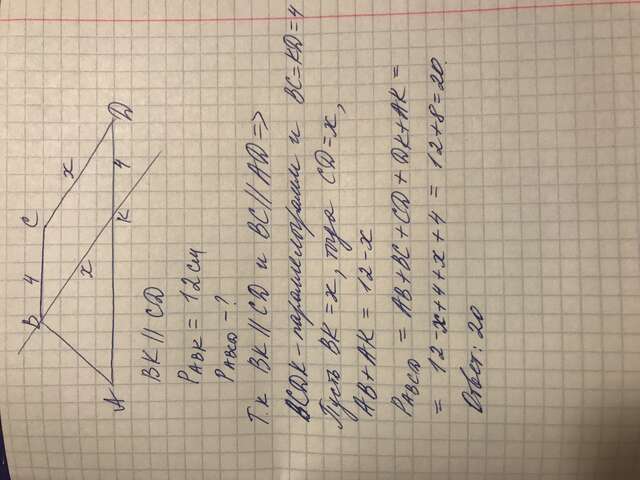 B 4 C
x x
A K 4 D
BK || CD
P_ABK = 12 см
P_ABCD - ?
Т.к BK || CD и BC || AD =>
BCDK - параллелограмм и BC = KD = 4
Пусть BK = x, тогда CD = x,
AB + AK = 12 - x
P_ABCD = AB + BC + CD + DK + AK =
= 12 - x + 4 + x + 4 = 12 + 8 = 20.
Ответ: 20